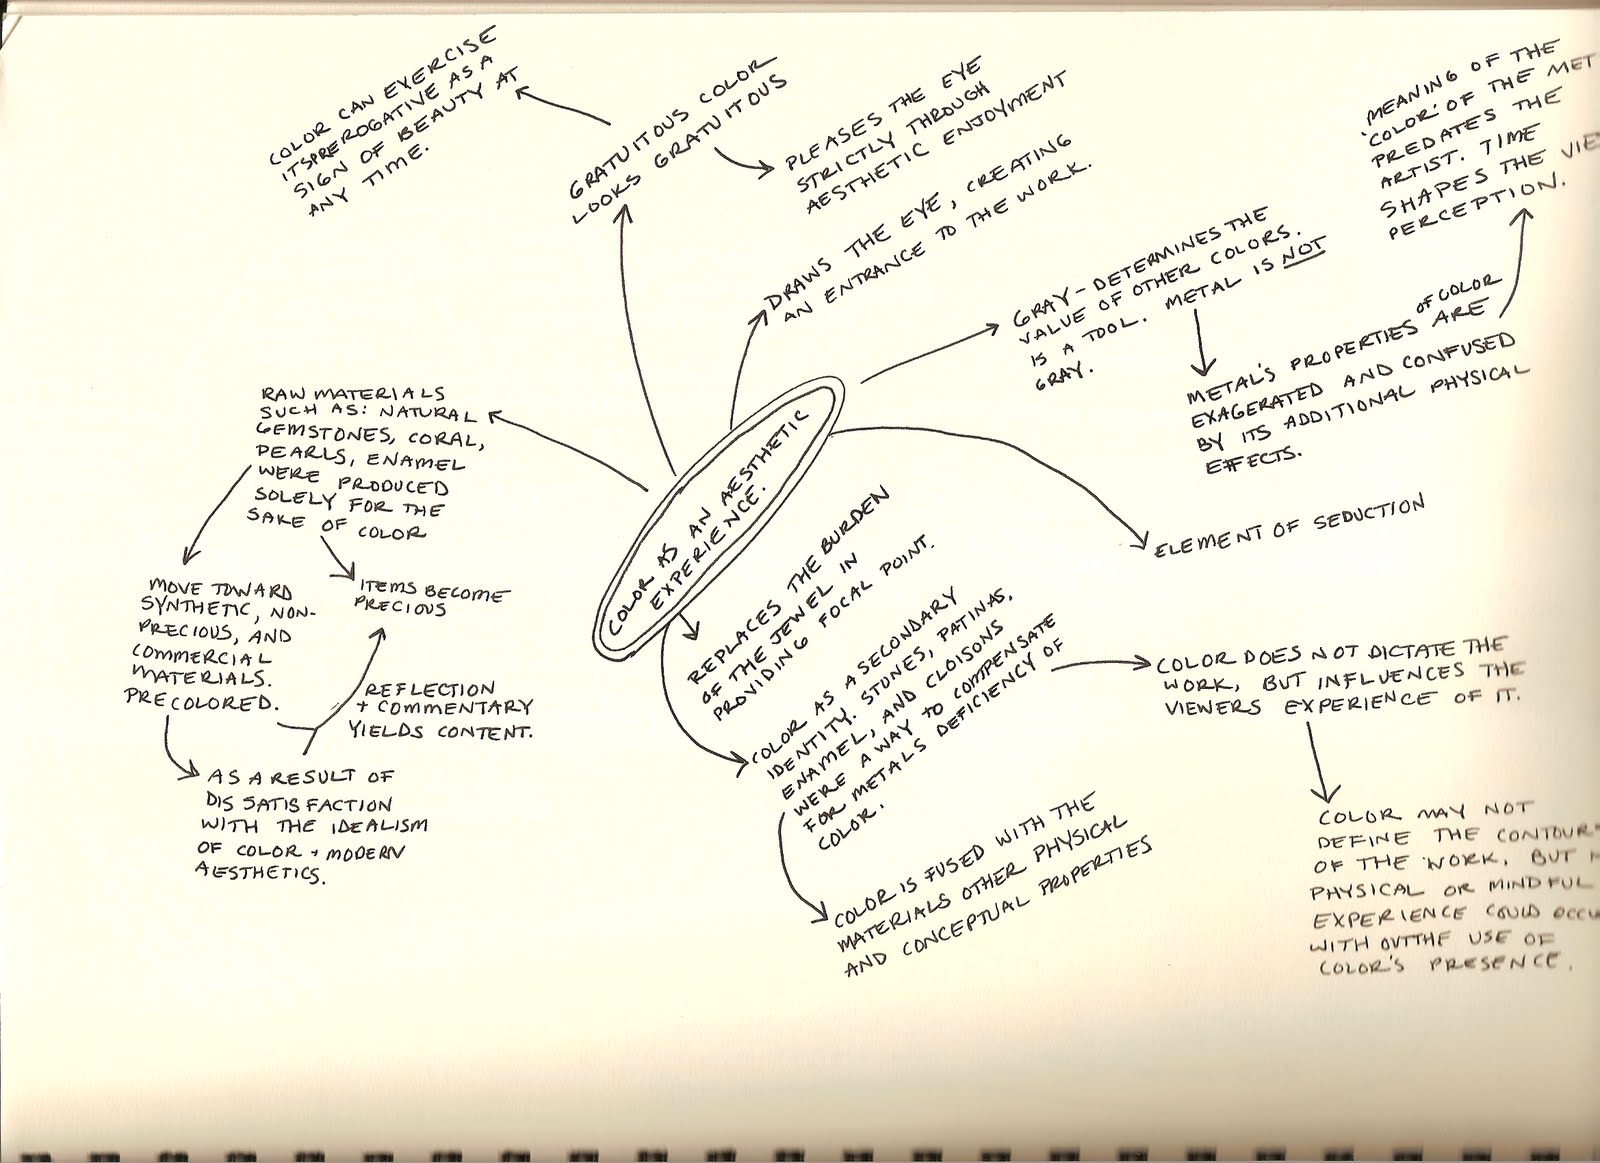 COLOR CAN EXERCISE
ITSPREROGATIVE AS A
SIGN OF BEAUTY AT
ANY TIME.
GRATUITOUS COLOR
LOOKS GRATUITOUS
PLEASES THE EYE
STRICTLY THROUGH
AESTHETIC ENJOYMENT
DRAWS THE EYE, CREATING
AN ENTRANCE TO THE WORK.
GRAY - DETERMINES THE
VALUE OF OTHER COLORS.
IS A TOOL. METAL IS NOT
GRAY.
MEANING OF THE
'COLOR' OF THE MET
PREDATES THE
ARTIST. TIME
SHAPES THE VIE
PERCEPTION.
METAL'S PROPERTIES OF COLOR ARE
EXAGERATED AND CONFUSED
BY ITS ADDITIONAL PHYSICAL
EFFECTS.
RAW MATERIALS
SUCH AS: NATURAL
GEMSTONES, CORAL,
PEARLS, ENAMEL
WERE PRODUCED
SOLELY FOR THE
SAKE OF COLOR
COLOR AS AN AESTHETIC
EXPERIENCE.
ELEMENT OF SEDUCTION
MOVE TOWARD
SYNTHETIC, NON-
PRECIOUS, AND
COMMERCIAL
MATERIALS.
PRECOLORED.
ITEMS BECOME
PRECIOUS
REFLECTION
+ COMMENTARY
YIELDS CONTENT.
AS A RESULT OF
DISSATISFACTION
WITH THE IDEALISM
OF COLOR + MODERN
AESTHETICS.
REPLACES THE BURDEN
OF THE JEWEL IN
PROVIDING FOCAL POINT.
COLOR AS A SECONDARY
IDENTITY. STONES, PATINAS,
ENAMEL, AND CLOISONS
WERE A WAY TO COMPENSATE
FOR METALS DEFICIENCY OF
COLOR.
COLOR IS FUSED WITH THE
MATERIALS OTHER PHYSICAL
AND CONCEPTUAL PROPERTIES
COLOR DOES NOT DICTATE THE
WORK, BUT INFLUENCES THE
VIEWERS EXPERIENCE OF IT.
COLOR MAY NOT
DEFINE THE CONTOUR
OF THE WORK, BUT
PHYSICAL OR MINDFUL
EXPERIENCE COULD OCCU
WITH OUT THE USE OF
COLOR'S PRESENCE.